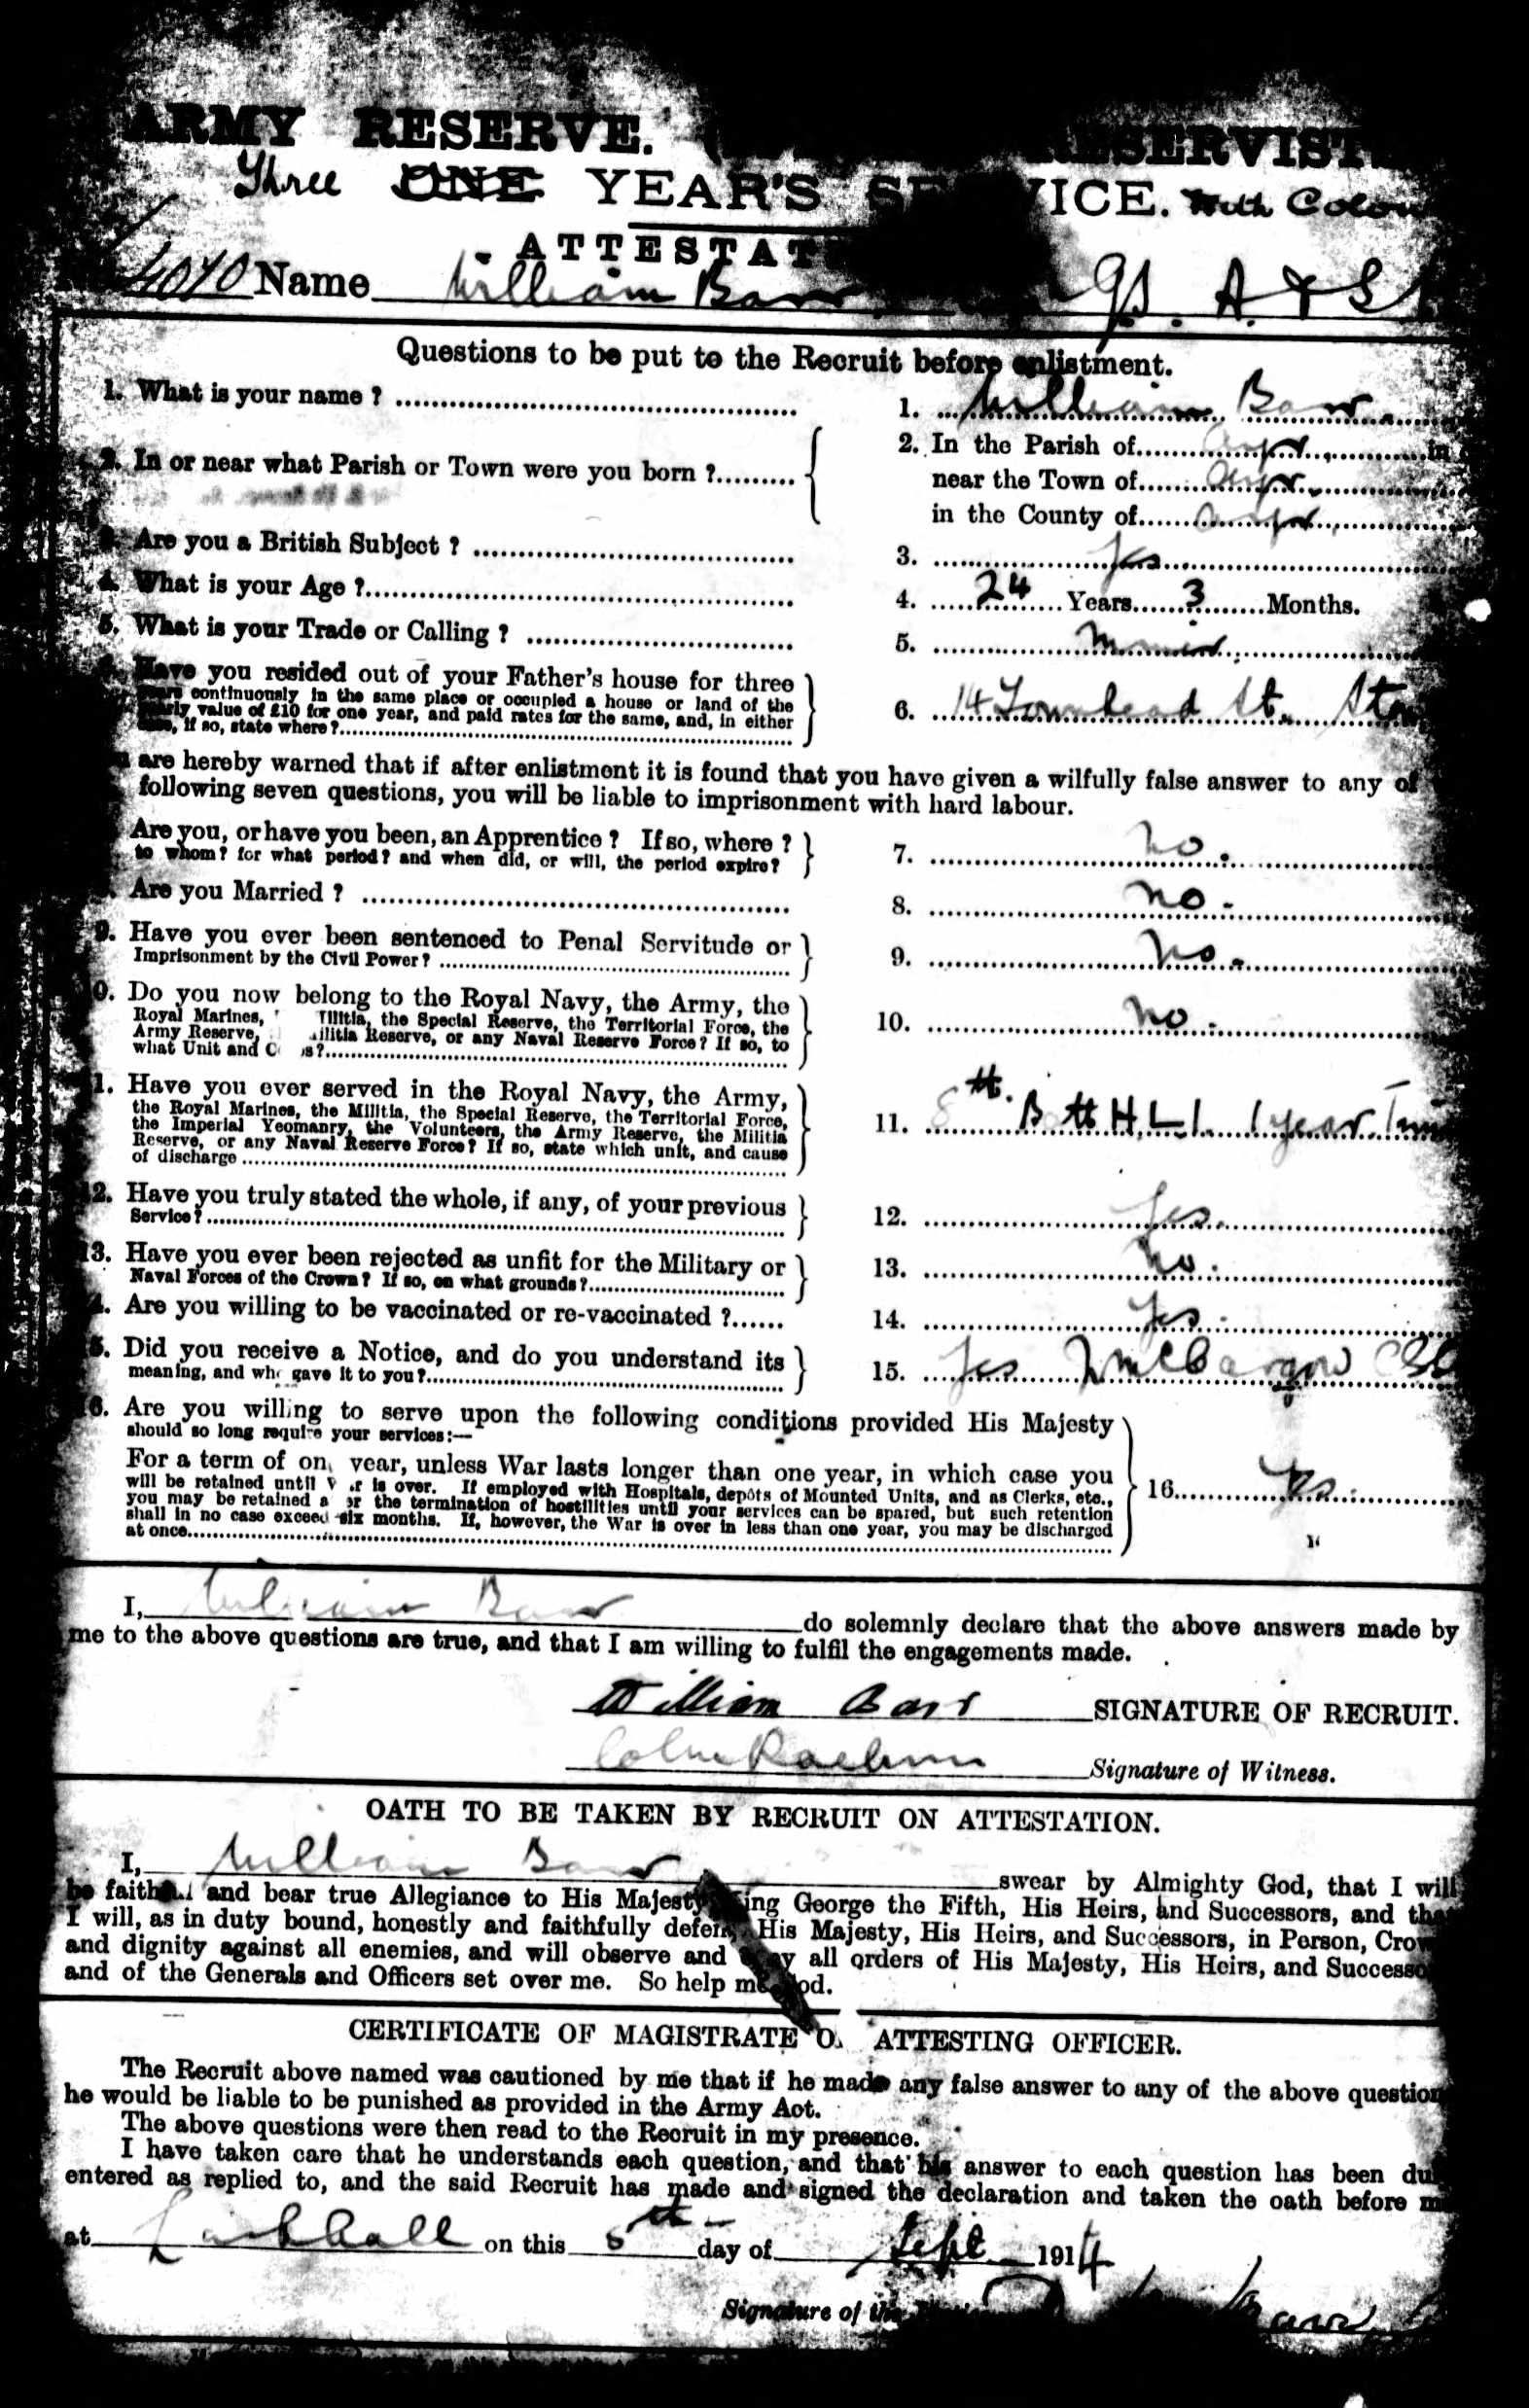 ARMY RESERVE. RESERVIST
Three ONE YEAR'S SERVICE. With Colou
ATTESTAT
Name William Barr A & S
Questions to be put to the Recruit before enlistment.
1. What is your name ? 1. William Barr.
2. In or near what Parish or Town were you born ? 2. In the Parish of Ayr, in
near the Town of Ayr.
in the County of Ayr.
3. Are you a British Subject ? 3. Yes
4. What is your Age ? 4. 24 Years 3 Months.
5. What is your Trade or Calling ? 5. Miner.
Have you resided out of your Father's house for three
years continuously in the same place or occupied a house or land of the
yearly value of £10 for one year, and paid rates for the same, and, in either
case, if so, state where ? 6. 14 Townhead St. Ston
are hereby warned that if after enlistment it is found that you have given a wilfully false answer to any of
following seven questions, you will be liable to imprisonment with hard labour.
Are you, or have you been, an Apprentice ? If so, where ?
to whom? for what period? and when did, or will, the period expire? 7. No.
Are you Married ? 8. No.
9. Have you ever been sentenced to Penal Servitude or
Imprisonment by the Civil Power? 9. No.
0. Do you now belong to the Royal Navy, the Army, the
Royal Marines, Militia, the Special Reserve, the Territorial Force, the
Army Reserve, Militia Reserve, or any Naval Reserve Force? If so, to
what Unit and Corps? 10. No.
1. Have you ever served in the Royal Navy, the Army,
the Royal Marines, the Militia, the Special Reserve, the Territorial Force,
the Imperial Yeomanry, the Volunteers, the Army Reserve, the Militia
Reserve, or any Naval Reserve Force? If so, state which unit, and cause
of discharge 11. 8th. Batt H.L.I. 1 year Tim
12. Have you truly stated the whole, if any, of your previous
Service? 12. Yes.
13. Have you ever been rejected as unfit for the Military or
Naval Forces of the Crown? If so, on what grounds? 13. No.
Are you willing to be vaccinated or re-vaccinated ? 14. Yes.
5. Did you receive a Notice, and do you understand its
meaning, and who gave it to you? 15. Yes
6. Are you willing to serve upon the following conditions provided His Majesty
should so long require your services:—
For a term of one year, unless War lasts longer than one year, in which case you
will be retained until War is over. If employed with Hospitals, depôts of Mounted Units, and as Clerks, etc.,
you may be retained after the termination of hostilities until your services can be spared, but such retention
shall in no case exceed six months. If, however, the War is over in less than one year, you may be discharged
at once. 16. Yes.
I, William Barr do solemnly declare that the above answers made by
me to the above questions are true, and that I am willing to fulfil the engagements made.
William Barr SIGNATURE OF RECRUIT.
Signature of Witness.
OATH TO BE TAKEN BY RECRUIT ON ATTESTATION.
I, William Barr swear by Almighty God, that I will
be faithful and bear true Allegiance to His Majesty King George the Fifth, His Heirs, and Successors, and that
I will, as in duty bound, honestly and faithfully defend His Majesty, His Heirs, and Successors, in Person, Crow
and dignity against all enemies, and will observe and obey all orders of His Majesty, His Heirs, and Successo
and of the Generals and Officers set over me. So help me God.
CERTIFICATE OF MAGISTRATE OR ATTESTING OFFICER.
The Recruit above named was cautioned by me that if he made any false answer to any of the above question
he would be liable to be punished as provided in the Army Act.
The above questions were then read to the Recruit in my presence.
I have taken care that he understands each question, and that his answer to each question has been du
entered as replied to, and the said Recruit has made and signed the declaration and taken the oath before m
at Larkhall on this 5th day of Sept 1914
Signature of the